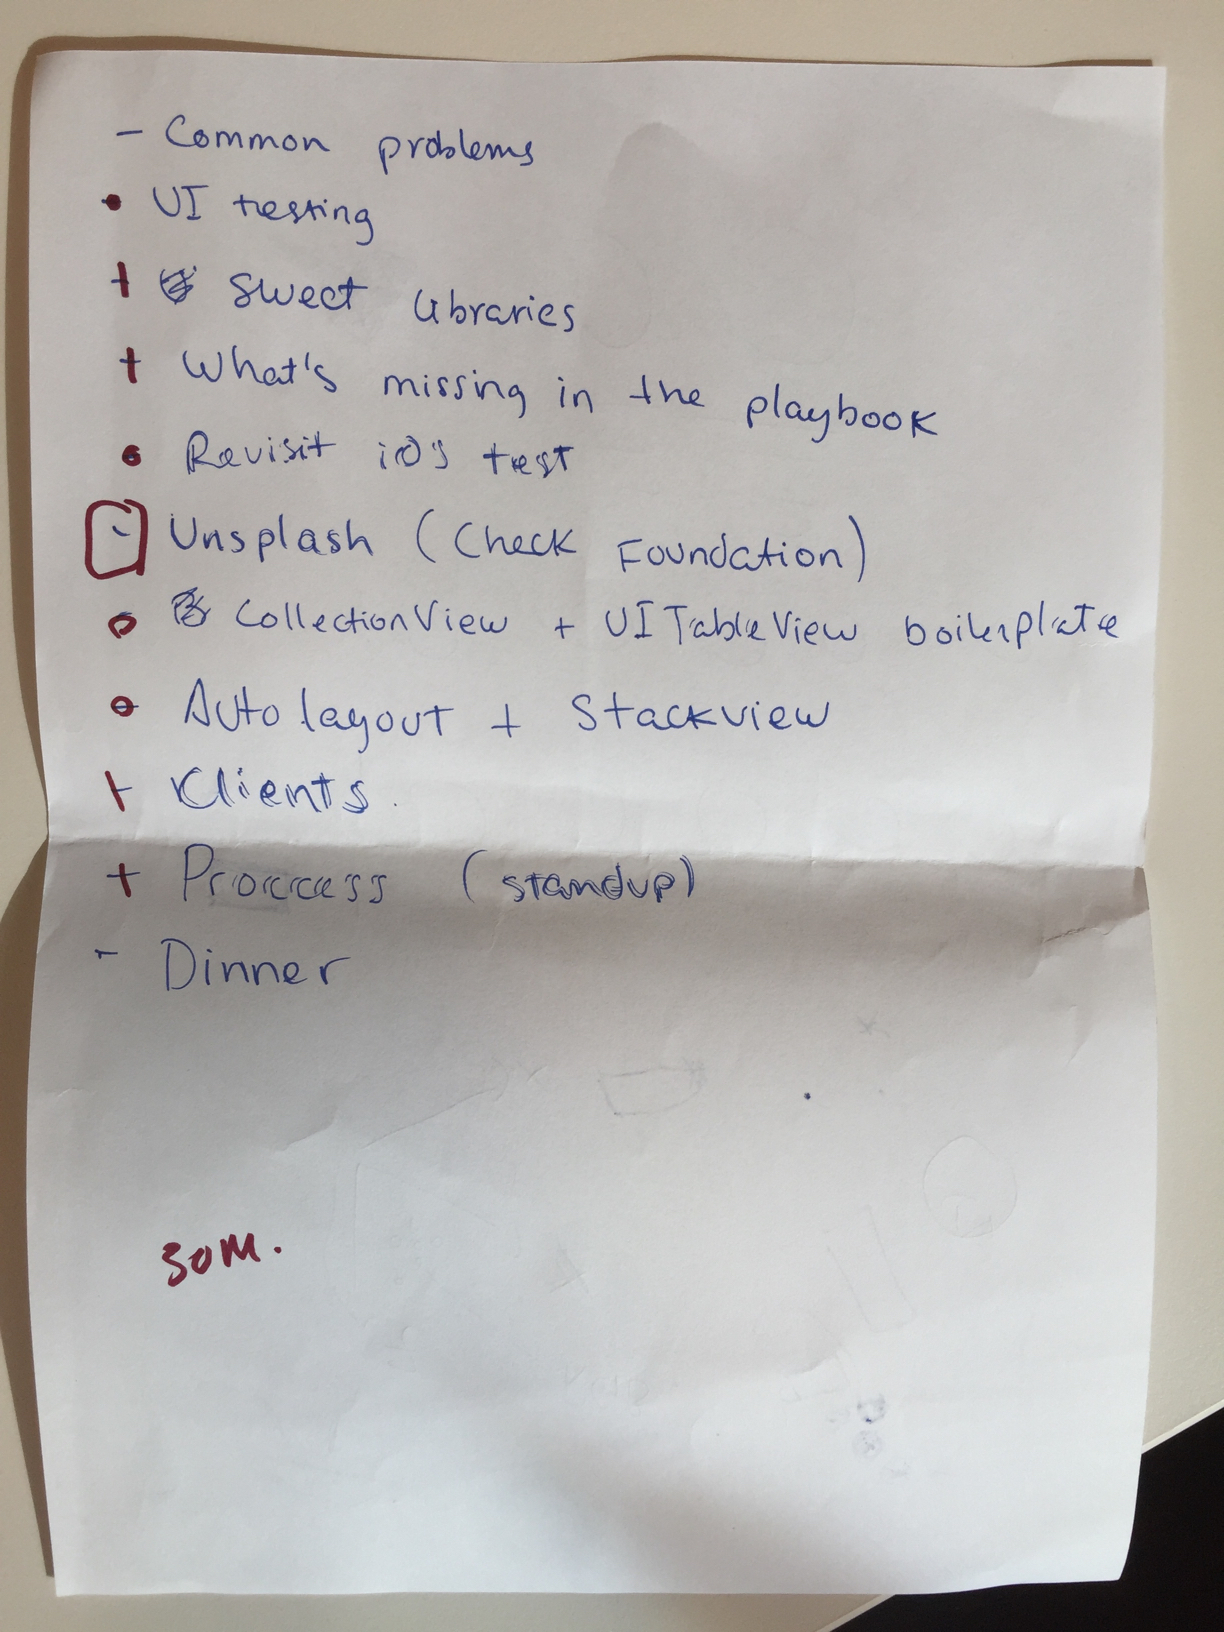 - Common problems
• UI testing
+ Sweet libraries
+ What's missing in the playbook
• Revisit iOS test
- Unsplash (Check Foundation)
• CollectionView + UITableView boilerplate
• Auto layout + Stackview
+ Clients
+ Proccess (standup)
- Dinner
30m.